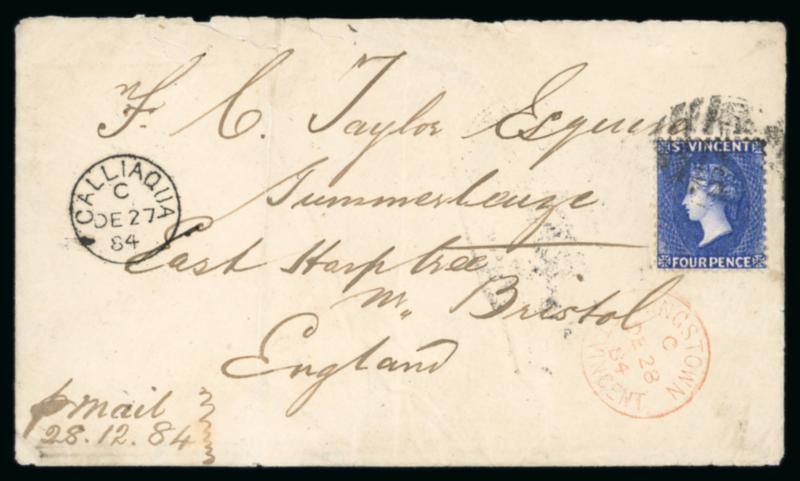 F. C. Taylor Esquire
Summerleaze
East Harptree
nr. Bristol
England
p mail
28.12.84
CALLIAQUA
C
DE 27
84
ST VINCENT
FOUR PENCE
KINGSTOWN
C
DE 28
84
ST VINCENT